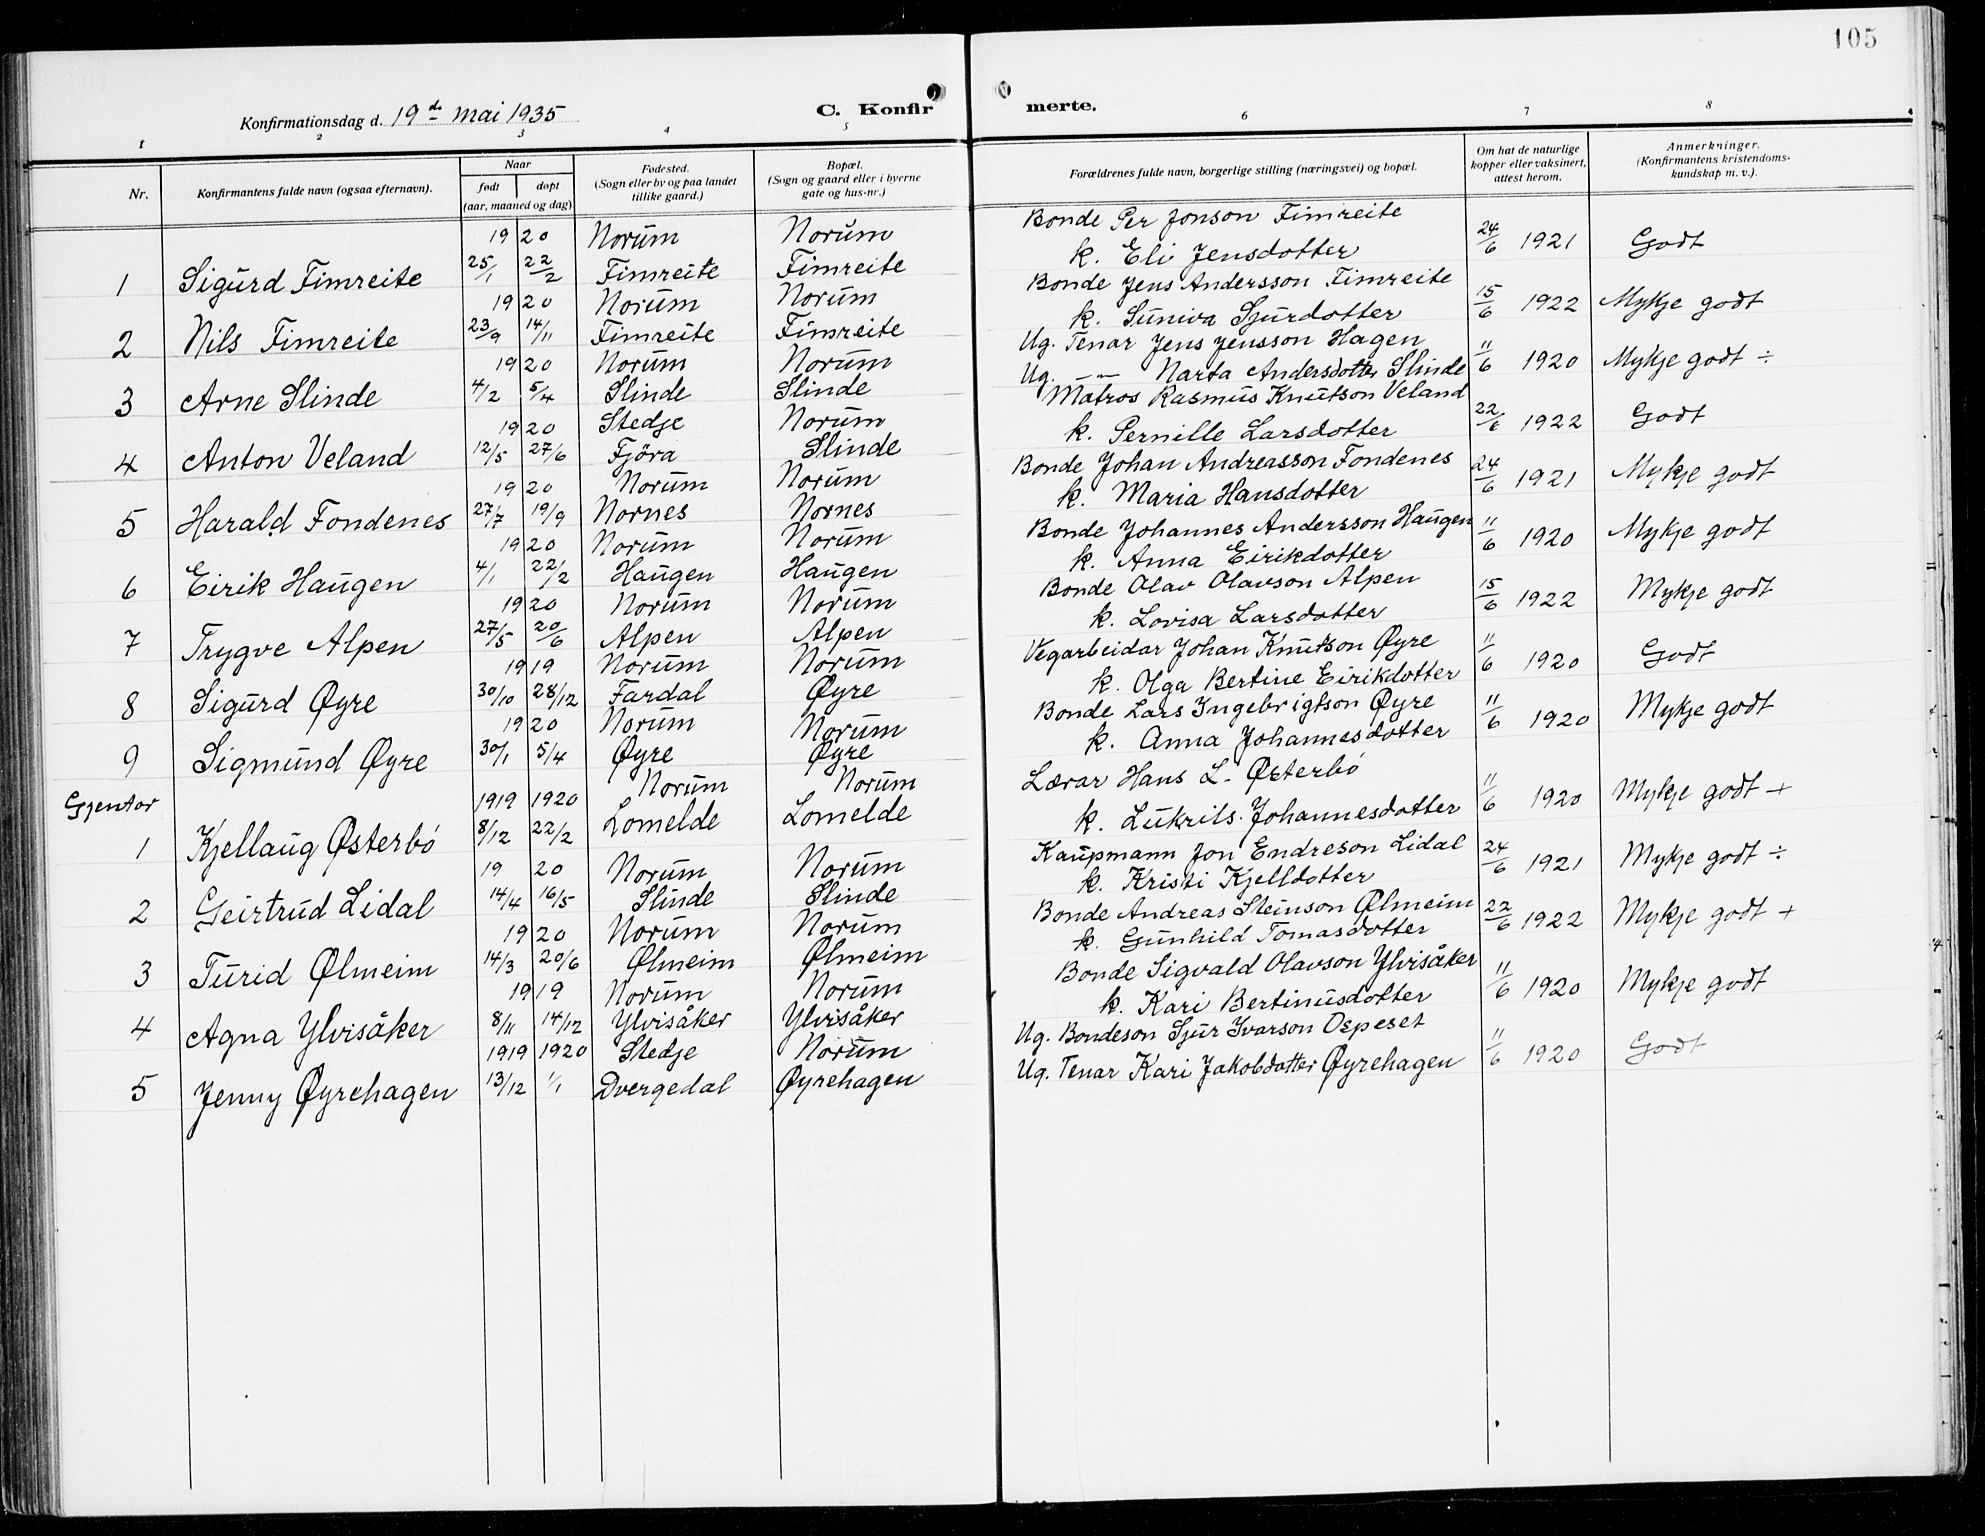 105
Konfirmationsdag d. 19de mai 1935
C. Konfirmerte.
1 2 3 4 5 6 7 8
Nr.
Konfirmantens fulde navn (ogsaa efternavn).
Naar
født døpt
(aar, maaned og dag)
Fødested.
(Sogn eller by og paa landet
tillike gaard.)
Bopæl.
(Sogn og gaard eller i byerne
gate og hus-nr.)
Forældrenes fulde navn, borgerlige stilling (næringsvei) og bopæl.
Om hat de naturlige
kopper eller vaksinert,
attest herom.
Anmerkninger.
(Konfirmantens kristendoms-
kundskap m. v.).
1920 Norum Norum Bonde Per Jonson Fimreite
1 Sigurd Fimreite 25/1 22/2 Fimreite Fimreite k. Eli Jensdotter 24/6 1921 Godt
1920 Norum Norum Bonde Jens Andersson Fimreite
2 Nils Fimreite 23/9 14/11 Fimreite Fimreite k. Suniva Sjurdotter 15/6 1922 Mykje godt
1920 Norum Norum Ug. Tenar Jens Jensson Hagen
3 Arne Slinde 4/2 5/4 Slinde Slinde Ug. — " — Marta Andersdotter Slinde 11/6 1920 Mykje godt ÷
1920 Stedje Norum Matros Rasmus Knutson Veland
4 Anton Veland 12/5 27/6 Fjöra Slinde k. Pernille Larsdotter 22/6 1922 Godt
1920 Norum Norum Bonde Johan Andreasson Fondenes
5 Harald Fondenes 27/7 19/9 Nornes Nornes k. Maria Hansdotter 24/6 1921 Mykje godt
1920 Norum Norum Bonde Johannes Andersson Haugen
6 Eirik Haugen 4/1 22/2 Haugen Haugen k. Anna Eirikdotter 11/6 1920 Mykje godt
1920 Norum Norum Bonde Olav Olavson Alpen
7 Trygve Alpen 27/5 20/6 Alpen Alpen k. Lovisa Larsdotter 15/6 1922 Mykje godt
1919 Norum Norum Vegarbeidar Johan Knutson Øyre
8 Sigurd Øyre 30/10 28/12 Fardal Øyre k. Olga Bertine Eirikdotter 11/6 1920 Godt
1920 Norum Norum Bonde Lars Ingebrigtson Øyre
9 Sigmund Øyre 30/1 5/4 Øyre Øyre k. Anna Johannesdotter 11/6 1920 Mykje godt
Gjentor
1919 1920 Norum Norum Lærar Hans L. Østerbö
1 Kjellaug Østerbö 8/12 22/2 Lomelde Lomelde k. Lukrits. Johannesdotter 11/6 1920 Mykje godt +
1920 Norum Norum Kaupmann Jon Endreson Lidal
2 Geirtrud Lidal 14/4 16/5 Slinde Slinde k. Kristi Kjelldotter 24/6 1921 Mykje godt ÷
1920 Norum Norum Bonde Andreas Steinson Ølmeim
3 Turid Ølmeim 14/3 20/6 Ølmeim Ølmeim k. Gunhild Tomasdotter 22/6 1922 Mykje godt +
1919 Norum Norum Bonde Sigvald Olavson Ylvisåker
4 Agna Ylvisåker 8/11 14/12 Ylvisåker Ylvisåker k. Kari Bertinusdotter 11/6 1920 Mykje godt
1919 1920 Stedje Norum Ug. Bondeson Sjur Ivarson Ospeset
5 Jenny Øyrehagen 13/12 1/1 Dvergedal Øyrehagen Ug. Tenar Kari Jakobdotter Øyrehagen 11/6 1920 Godt